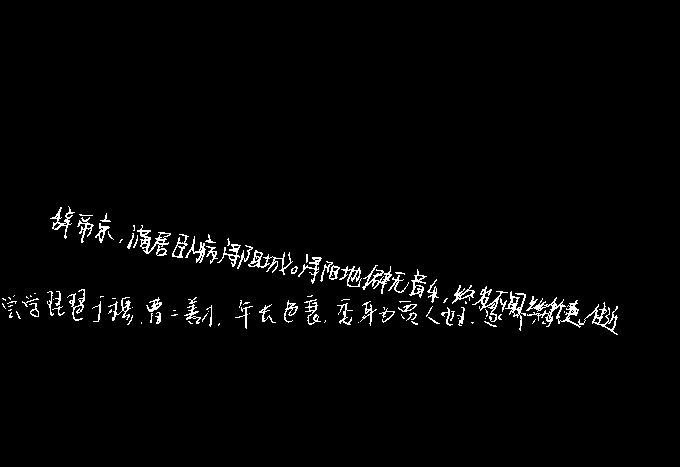 辞帝京,谪居卧病浔阳城。浔阳地僻无音乐,终岁不闻丝
尝学琵琶于穆、曹二善才,年长色衰,委身为贾人妇。遂